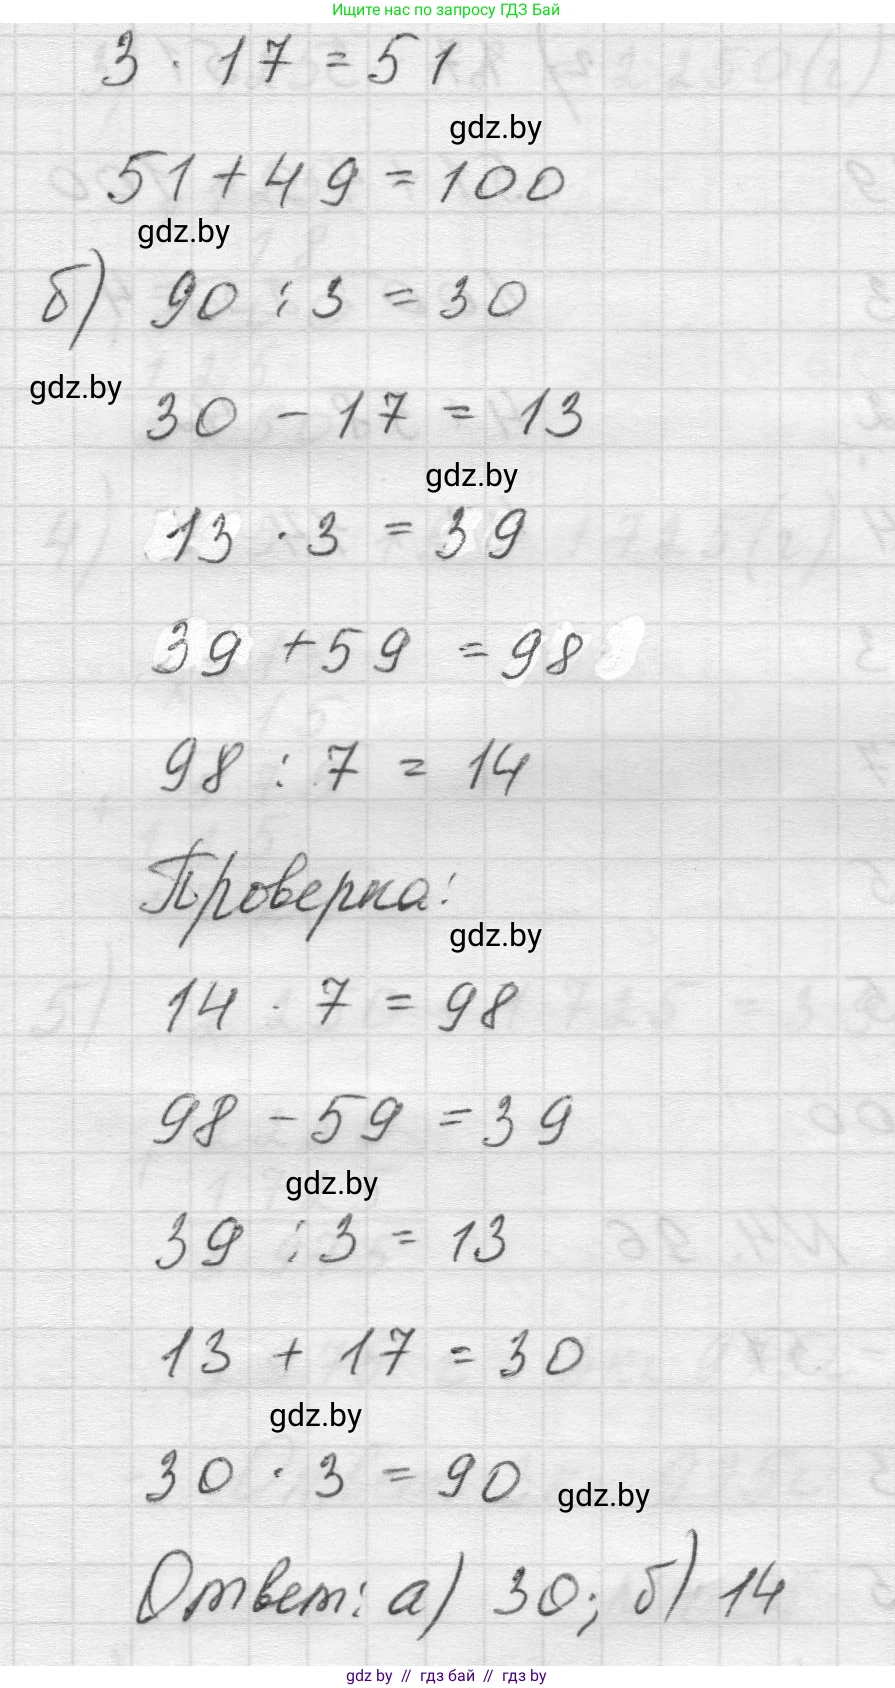 Ищите нас по запросу ГДЗ Бай
3 · 17 = 51
gdz.by
51 + 49 = 100
gdz.by
б) 90 : 3 = 30
gdz.by
30 - 17 = 13
gdz.by
13 · 3 = 39
39 + 59 = 98
98 : 7 = 14
Проверка:
gdz.by
14 · 7 = 98
98 - 59 = 39
gdz.by
39 : 3 = 13
13 + 17 = 30
gdz.by
30 · 3 = 90
gdz.by
Ответ: а) 30; б) 14
gdz by // гдз бай // гдз by